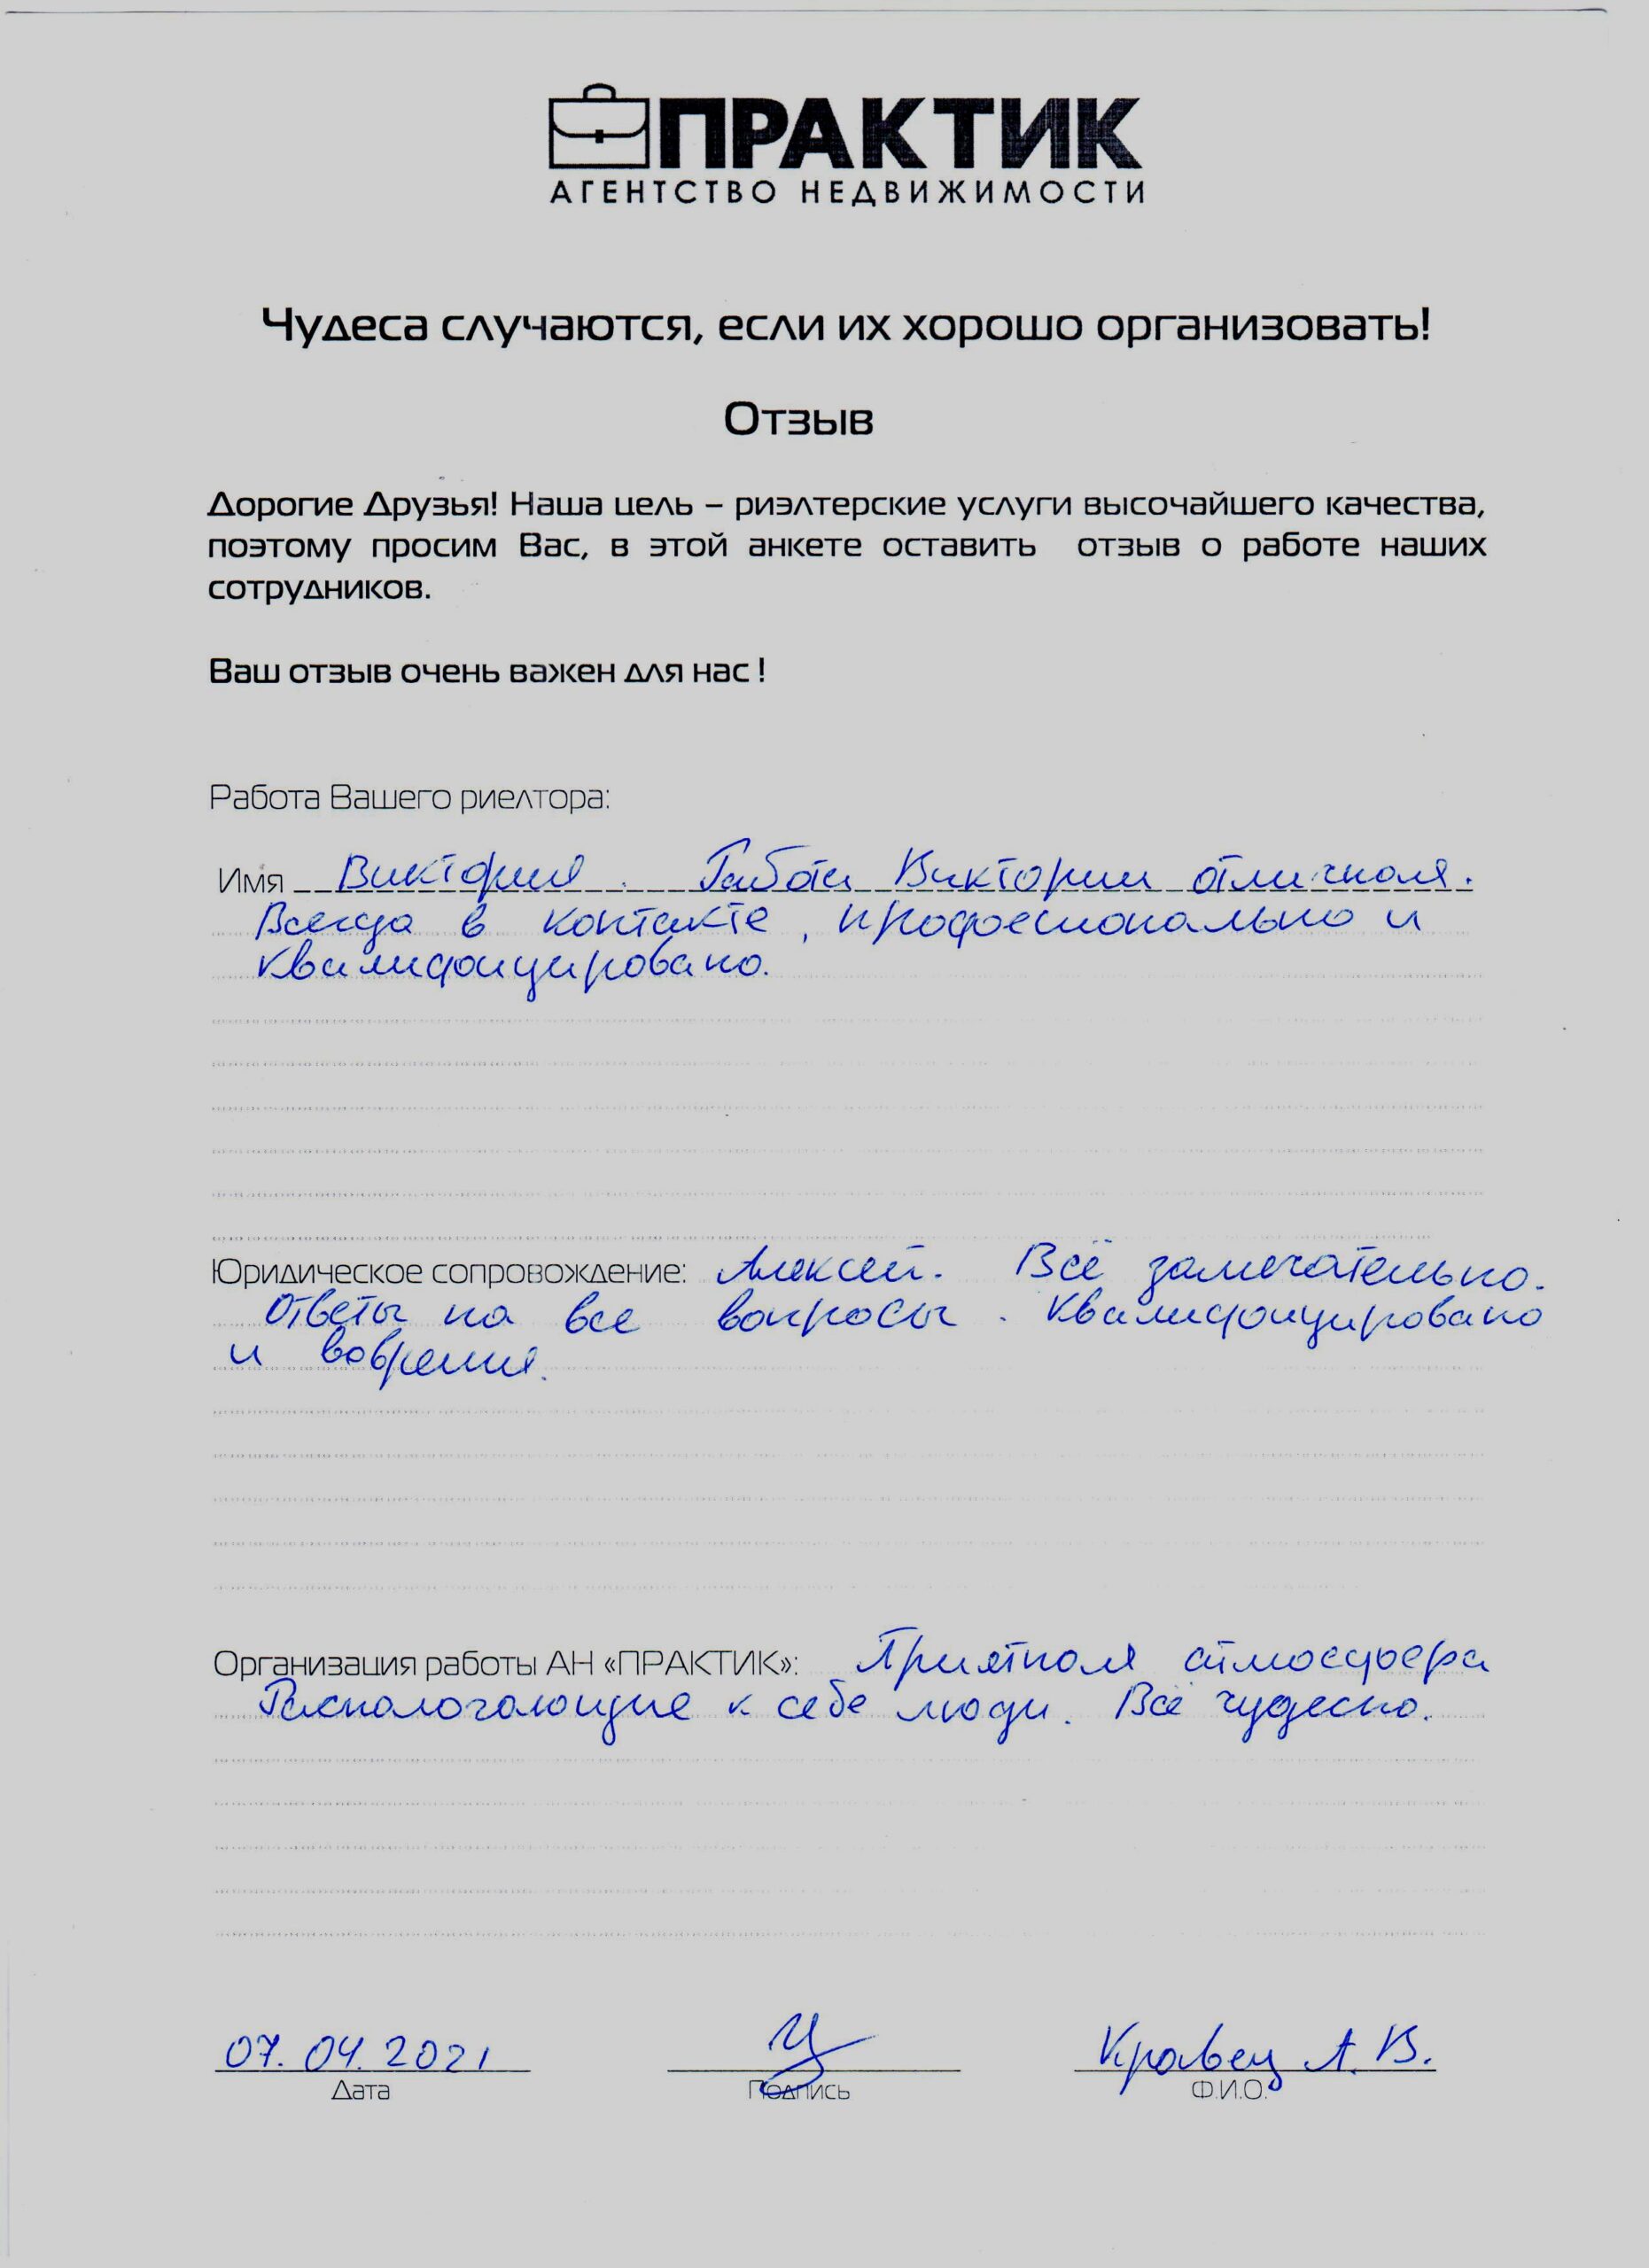 ПРАКТИК
АГЕНТСТВО НЕДВИЖИМОСТИ
Чудеса случаются, если их хорошо организовать!
Отзыв
Дорогие Друзья! Наша цель – риэлтерские услуги высочайшего качества,
поэтому просим Вас, в этой анкете оставить отзыв о работе наших
сотрудников.
Ваш отзыв очень важен для нас !
Работа Вашего риелтора:
Имя Виктория. Работа Виктории отличная.
Всегда в контакте, профессионально и
квалифоицировано.
Юридическое сопровождение: Алексей. Всё замечательно.
Ответы на все вопросы. Квалифоицировано
и вовремя.
Организация работы АН «ПРАКТИК»: Приятная атмосфера
Распологающие к себе люди. Всё чудесно.
07.04.2021 Кравец А.В.
Дата Подпись Ф.И.О.